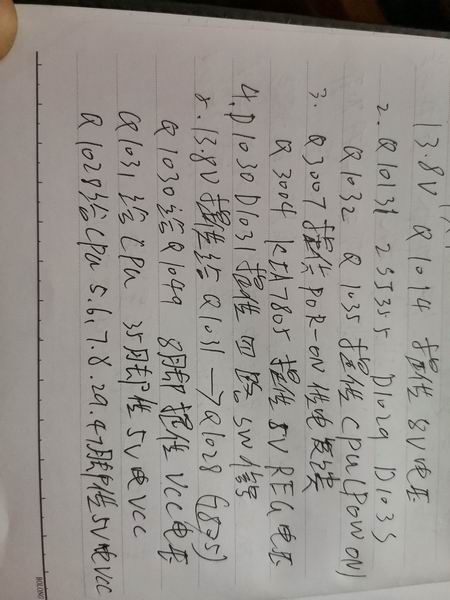 13.8V Q1014 提供 8V 电压
2. Q1013 2SJ355 D1029 D1033
Q1032 Q1035 提供 CPU(POWON)
3. Q3007 提供 POR-ON 供电
Q3004 KIA7805 提供 5V REG 电压
4. D1030 D1031 提供 SW 信号
5. 13.8V 提供给 Q1031 → Q1028 (7805)
Q1030给Q1049 8脚 提供 VCC 电压
Q1031 给 CPU 35脚供 5V 电 VCC
Q1028给CPU 5.6.7.8.29.47脚供5V电VCC
BOLONG